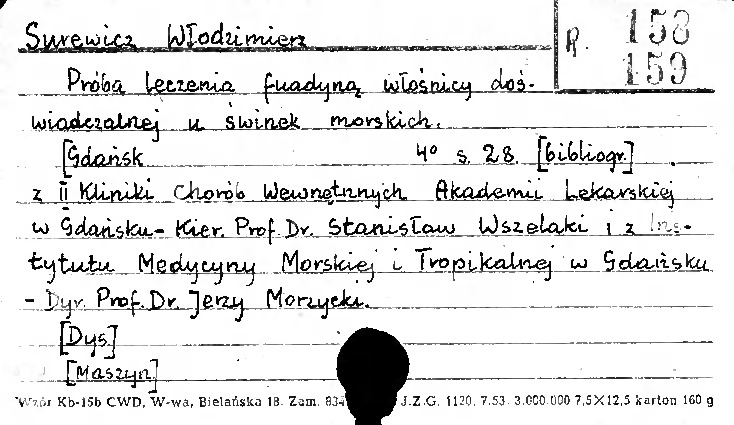 Surewicz Włodzimierz
R. 158
159
Próba leczenia fuadyną włośnicy doś-
wiadczalnej u świnek morskich.
[Gdańsk 4° s. 28. [bibliogr.]
z II Kliniki Chorób Wewnętrznych Akademii Lekarskiej
w Gdańsku - Kier. Prof. Dr. Stanisław Wszelaki i z Ins-
tytutu Medycyny Morskiej i Tropikalnej w Gdańsku
- Dyr. Prof. Dr. Jerzy Morzycki.
[Dys.]
[Maszyn]
Wzór Kb-15b CWD, W-wa, Bielańska 18. Zam. 834 J.Z.G. 1120. 7.53. 3.000.000 7,5×12,5 karton 160 g